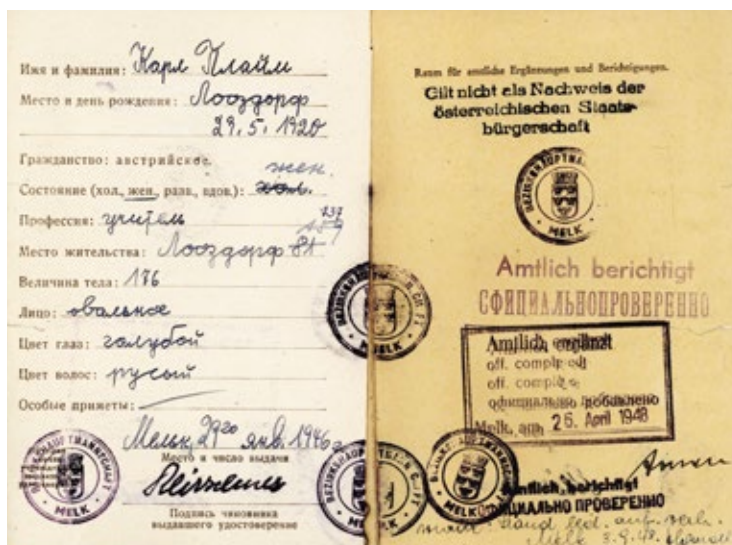 Имя и фамилия: Карл Плайм
Место и день рождения: Лооздорф
29.5.1920
Гражданство: австрийское.
жен.
Состояние (хол., жен., разв., вдов.): хол.
Профессия: учитель
737
Место жительства: Лооздорф 81
Величина тела: 176
Лицо: овальное
Цвет глаз: голубой
Цвет волос: русый
Особые приметы:
Мельк, 29го янв. 1946 г.
Место и число выдачи
Подпись чиновника
выдавшего удостоверение
BEZIRKSHAUPTMANNSCHAFT
MELK
Raum für amtliche Ergänzungen und Berichtigungen.
Gilt nicht als Nachweis der
österreichischen Staats-
bürgerschaft
BEZIRKSHAUPTMANN
MELK
Amtlich berichtigt
ОФИЦИАЛЬНОПРОВЕРЕННО
Amtlich ergänzt
off. completed
off. complète
официально добавлено
Melk, am 26. April 1948
Amtlich berichtigt
ОФИЦИАЛЬНО ПРОВЕРЕННО
Melk 3.9.48.